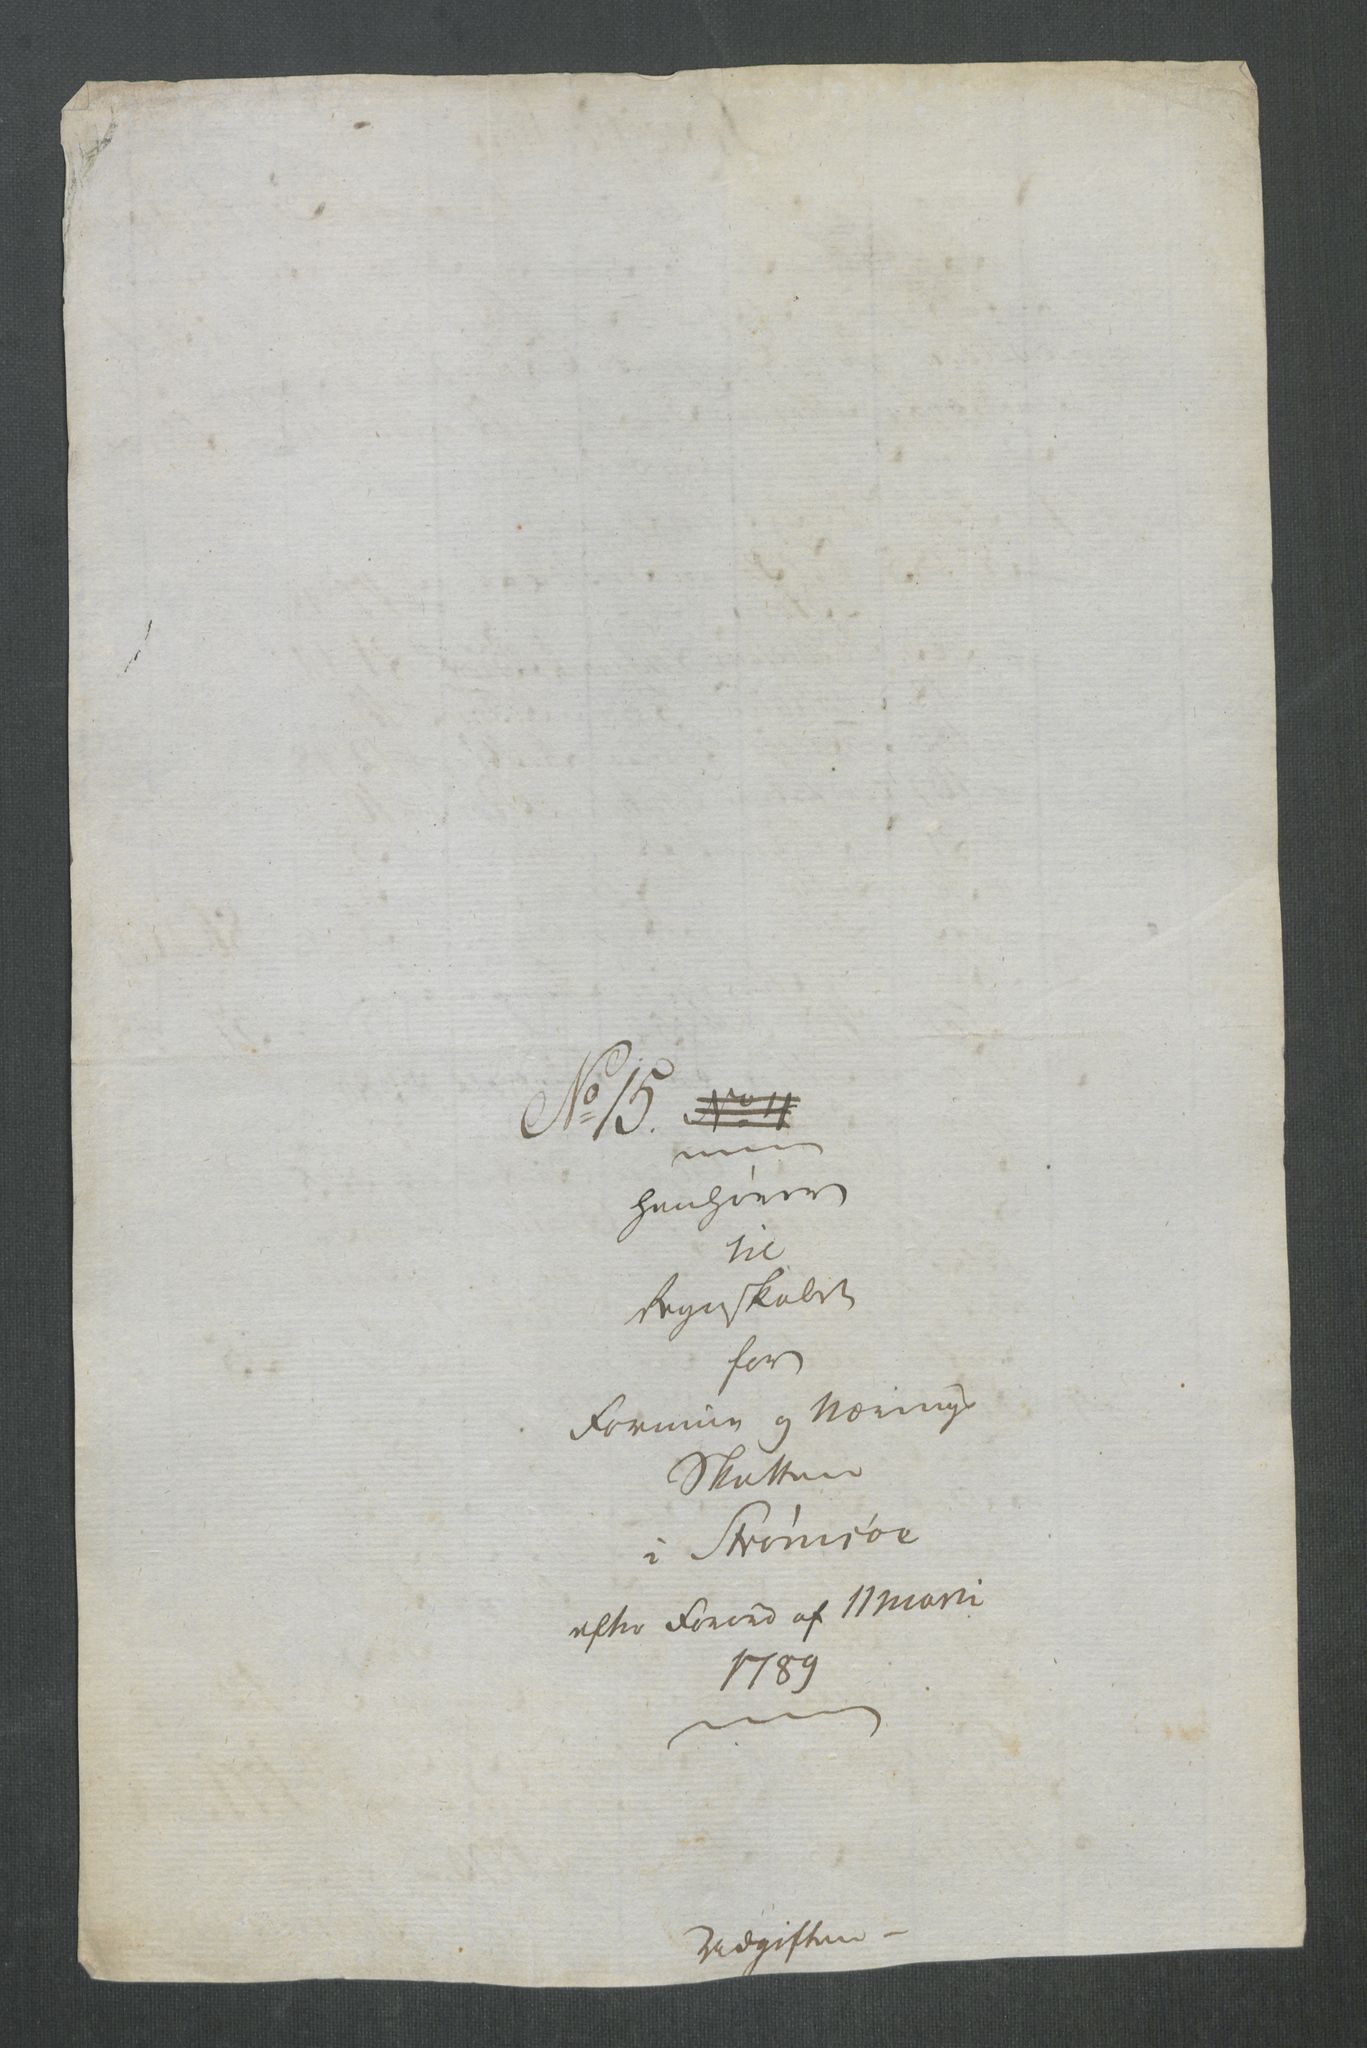 No 15. No 11
henhører
til
Regnskabet
for
Formue og Nærings
Skatten
i Strømsøe
efter Forord af 11 Marti
1789
Udgiften -